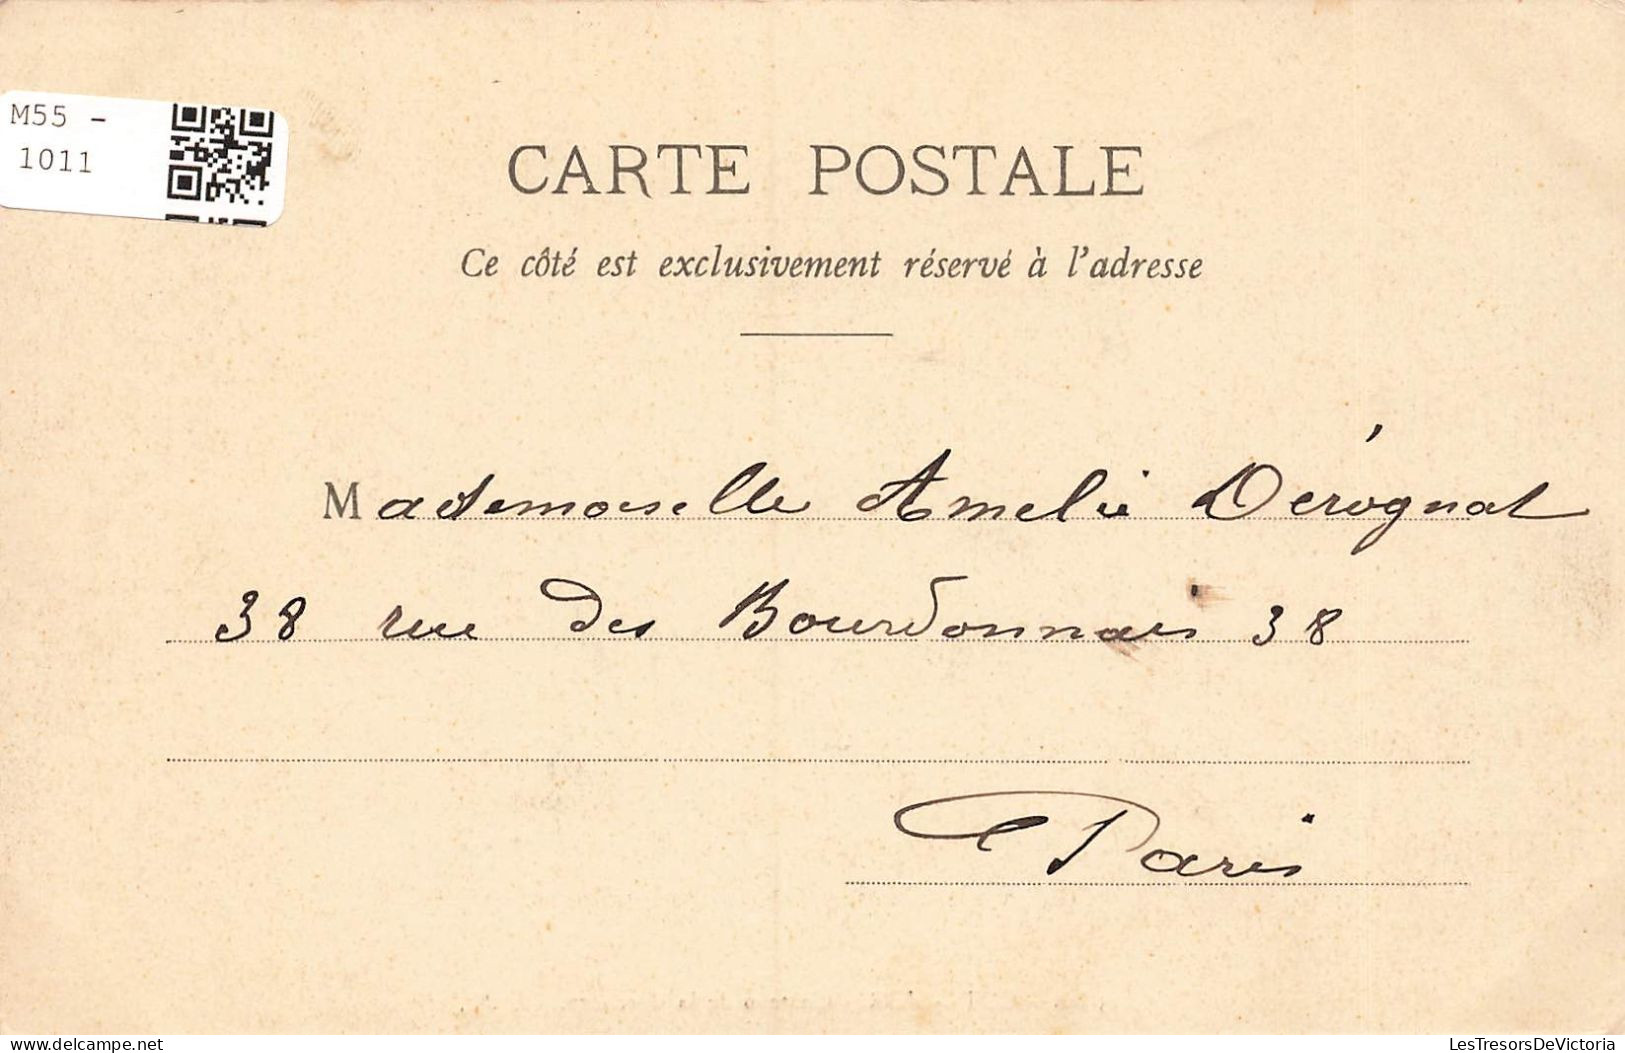 M55 -
1011
CARTE POSTALE
Ce côté est exclusivement réservé à l'adresse
Mademoiselle Amelie Dérognat
38 rue des Bourdonnais 38
Paris
LesTresorsDeVictoria
delcampe.net